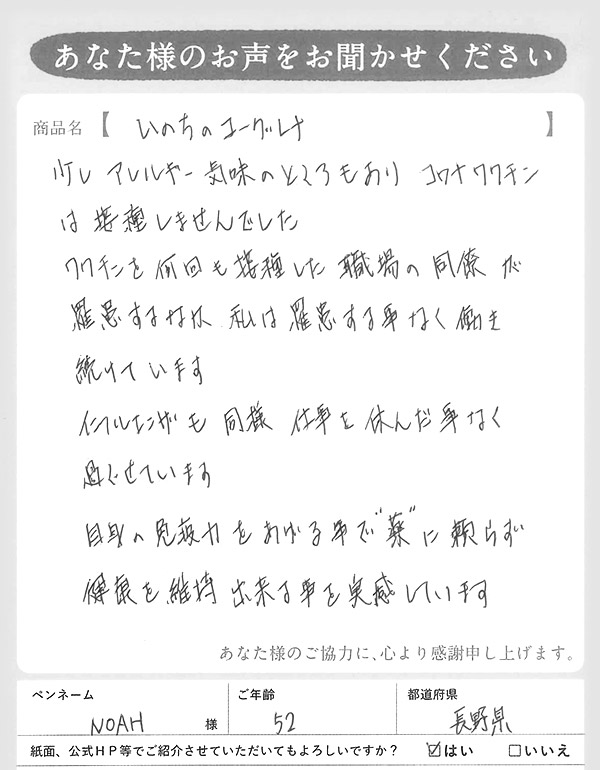 あなた様のお声をお聞かせください
商品名【 いのちのヨーグルト 】
少し アレルギー気味のところもあり コロナワクチン
は接種しませんでした
ワクチンを何回も接種した職場の同僚が
罹患するなか 私は罹患する事なく働き
続けています
インフルエンザも同様 仕事を休んだ事なく
過ごせています
自身の免疫力をあげる事で“薬”に頼らず
健康を維持出来る事を実感しています
あなた様のご協力に、心より感謝申し上げます。
ペンネーム ご年齢 都道府県
NOAH 様 52 長野県
紙面、公式HP等でご紹介させていただいてもよろしいですか? ☑はい □いいえ